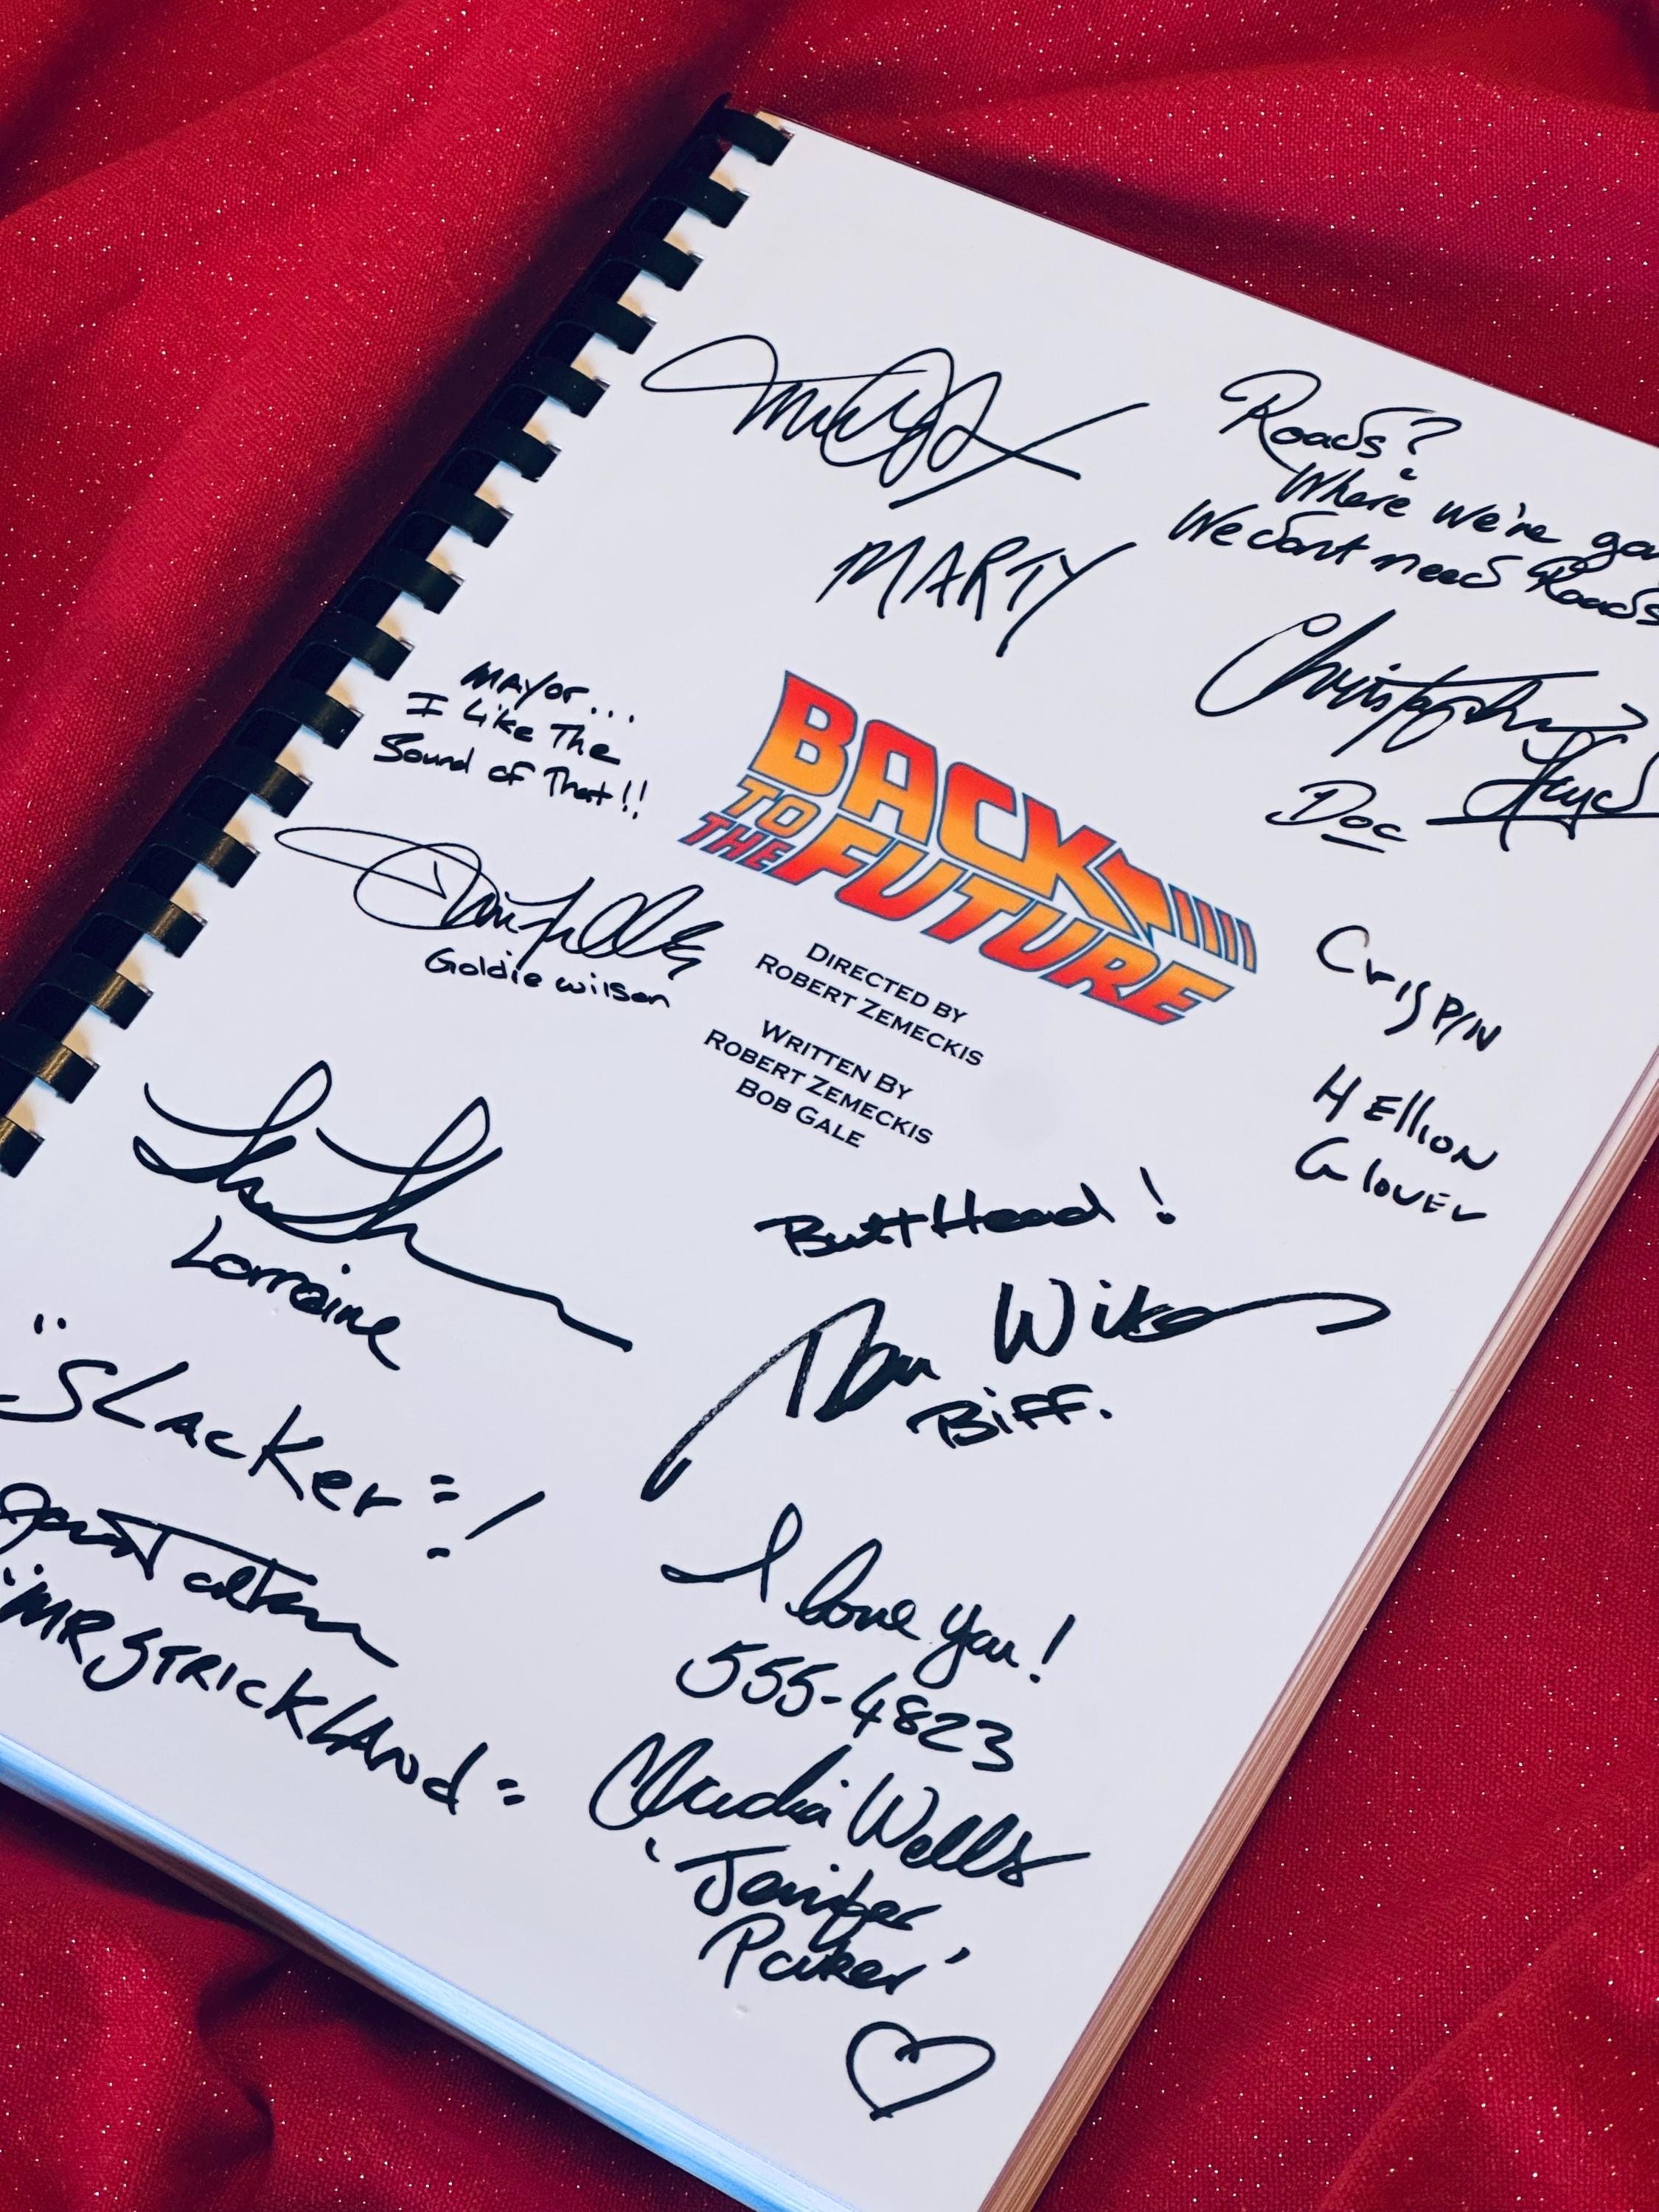 MARTY
Roads?
Where we're
We dont need Roads
Christopher Lloyd
Doc
MAYOR...
I Like The
Sound of That!!
Goldie wilson
BACK
TO
THE FUTURE
DIRECTED BY
ROBERT ZEMECKIS
WRITTEN BY
ROBERT ZEMECKIS
BOB GALE
CrispIN
HEllION
GlovEr
Lorraine
ButtHead!
Tom Wilson
Biff.
"SLacKer"!
"MR STRICKLANd"
I love you!
555-4823
Claudia Wells
'Jennifer
Parker'